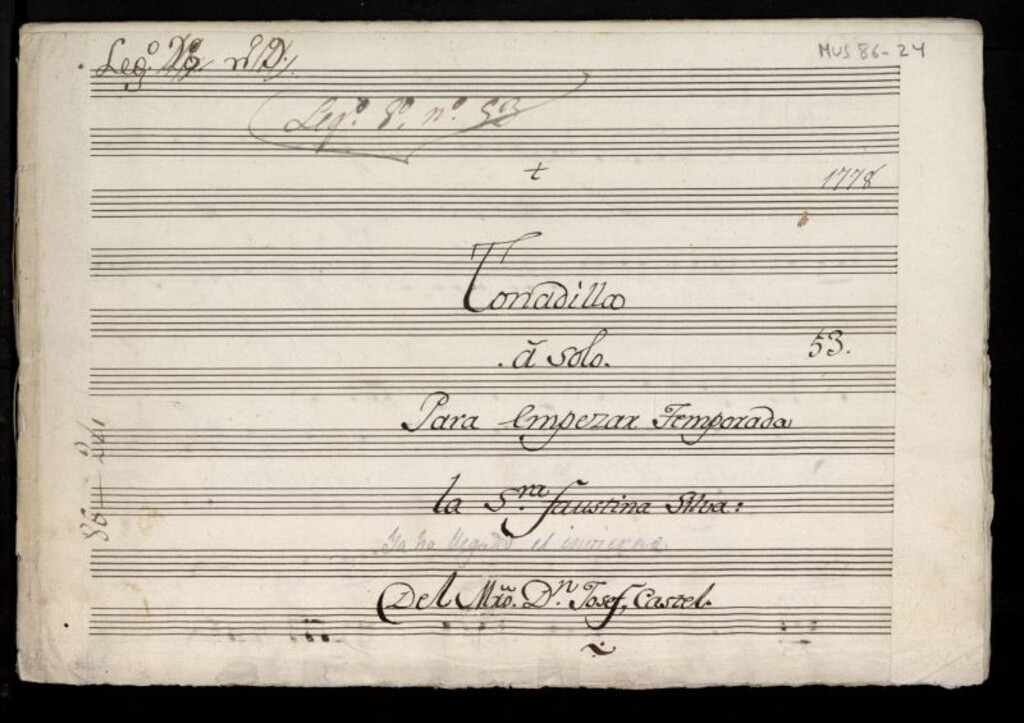 MUS 86-24
Leg.º 8º, nº 53
+
1778
Tonadilla
. á solo.
53.
Para empezar Temporada
la S.ra faustina Silva:
Ya ha llegado el invierno.
Del Mro. D.n Josef, Castel.